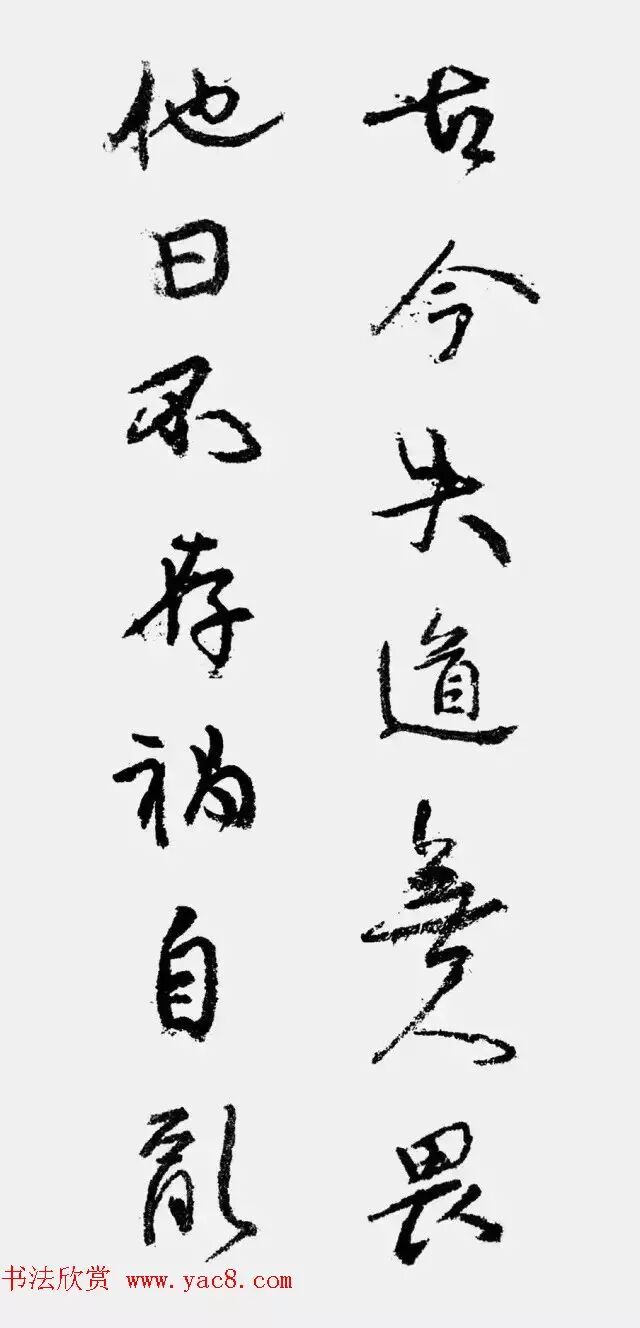 古今失道無人畏
他日不存禍自亂
书法欣赏 www.yac8.com